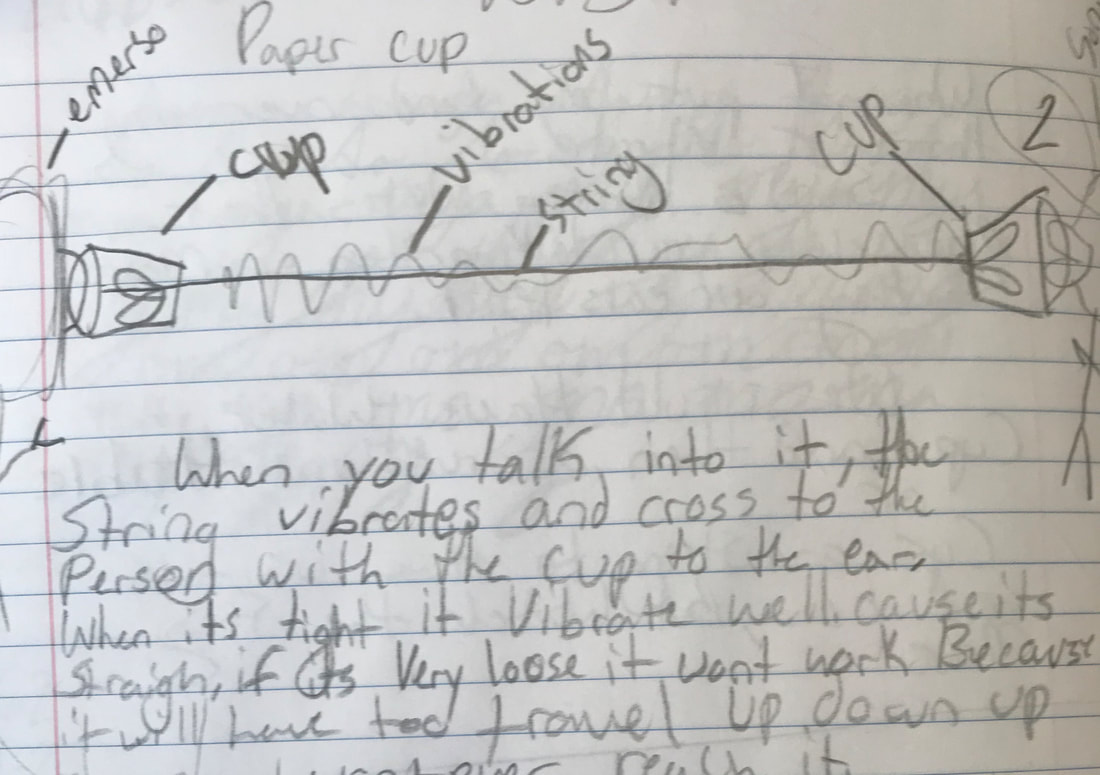 Paper cup
cup
vibrations
string
cup
2
When you talk into it, the
String vibrates and cross to the
Person with the cup to the ear,
When its tight it Vibrate well cause its
straigh, if its Very loose it wont work Because
it will have too travel up down up
reach it